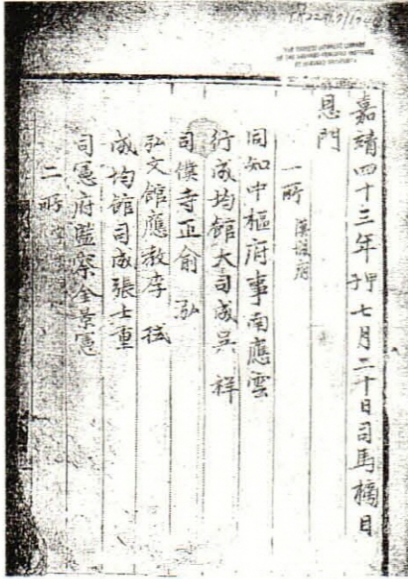 嘉靖四十三年甲子七月二十日司馬榜目
恩門
一所 漢城府
同知中樞府事南應雲
行成均館大司成吳 祥
司僕寺正俞 弘
弘文館應敎李 拭
成均館司成張士重
司憲府監察金景憲
二所